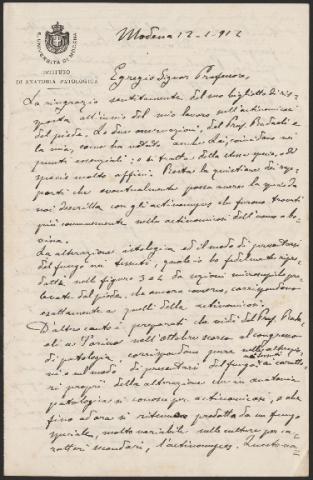 R. UNIVERSITÀ DI MODENA
ISTITUTO
DI ANATOMIA PATOLOGICA
Modena 12-1-912
Egregio Signor Professore,
La ringrazio sentitamente del suo biglietto di ri-
sposta all'invio del mio lavoro sull'actinomicosi
del piede. Le due osservazioni, del Prof. e
la mia, come ha notato anche Lei, coincidono nei
punti essenziali: o si tratta della stessa specie, o di
specie molto affini. Resta la quistione dei rap-
porti che eventualmente possa avere la specie da
noi descritta con gli actinomyces che furono trovati
più comunemente nella actinomicosi dell'uomo e bo-
vina.
La alterazione istologica ed il modo di presentarsi
del fungo nei tessuti, quale io ho fedelmente ripro-
dotta nelle figure 3 e 4 da sezioni microscopiche pre-
levate dal piede, che ancora conservo, corrispondono
esattamente a quelli della actinomicosi.
D'altro canto i preparati che vidi del Prof.
a Torino nell'ottobre scorso al congresso
di patologia, corrispondono pure nelle alterazio-
ni e nel modo di presentarsi del fungo nei tessuti ai caratte-
ri proprii della alterazione che in anatomia
patologica si conosce per actinomicosi, e che
fino ad ora si ritenne prodotta da un fungo
speciale, molto variabile nelle culture per ca-
ratteri secondari, l'actinomyces.